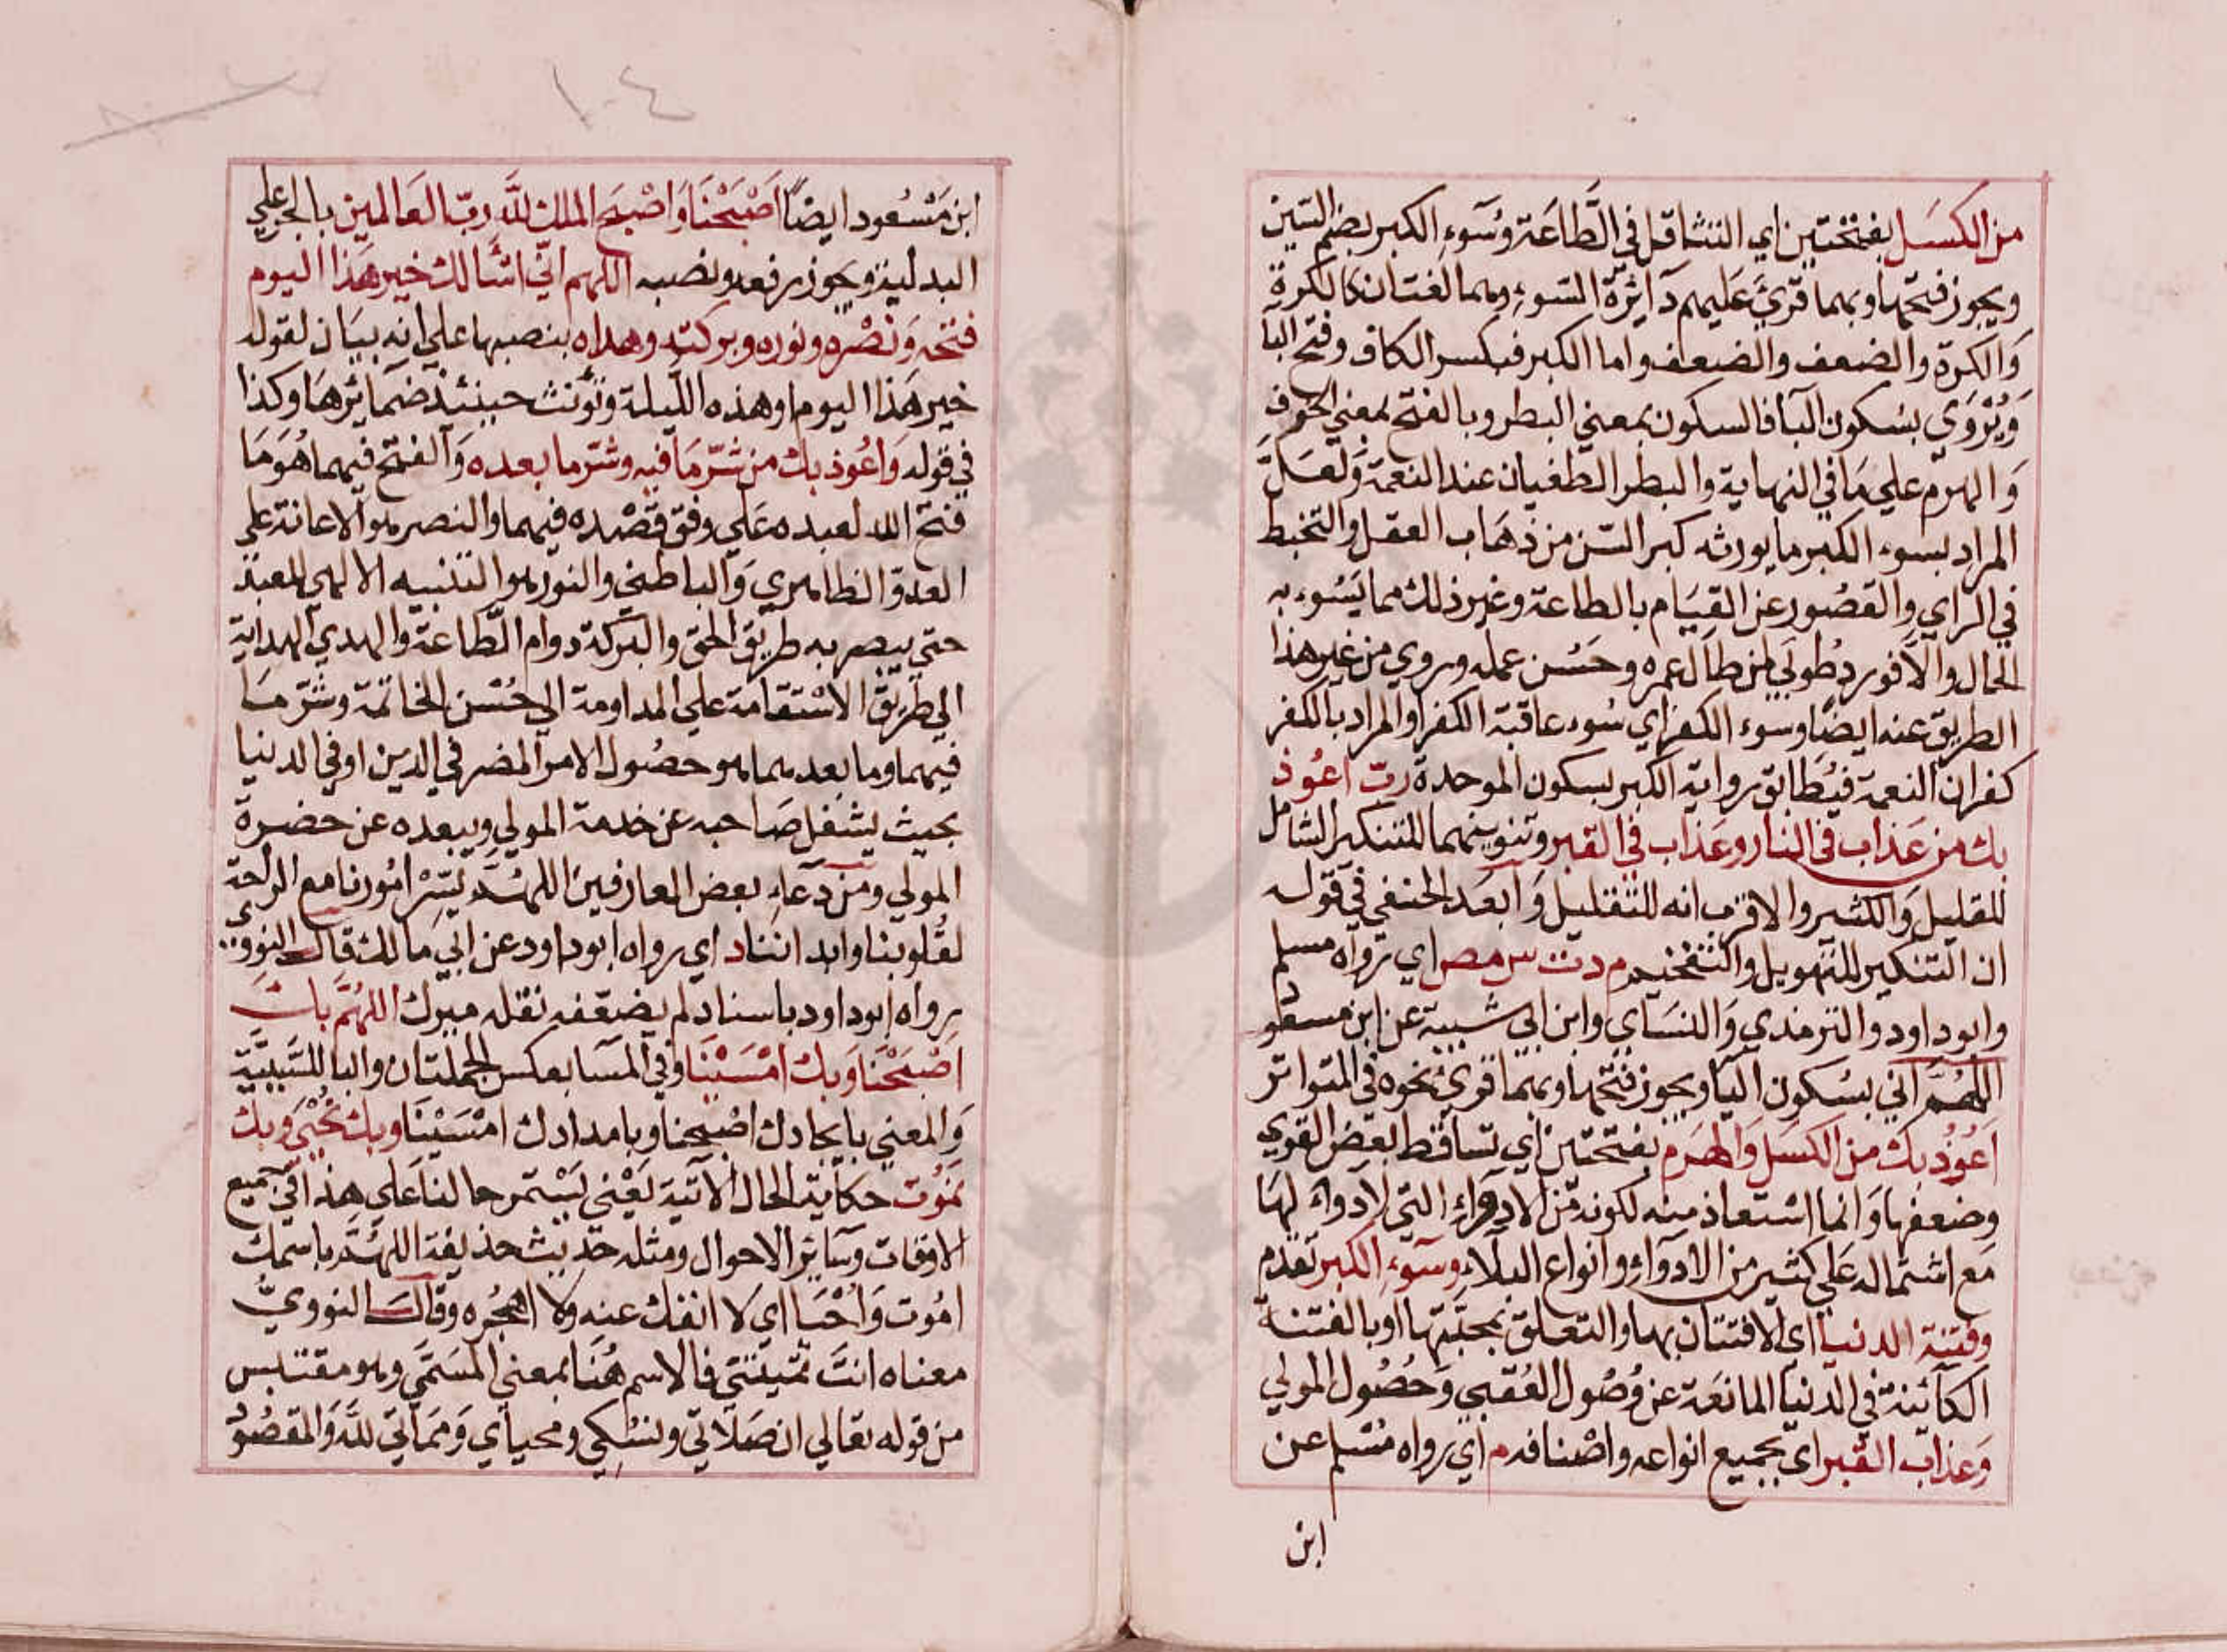 من الكسل بفتحتين اي التثاقل في الطاعة وسوء الكبر بضم السين
ويجوز فتحها وبهما قرئ عليهم دآئرة السوء وهما لغتان كالكره
والكره والضعف والضعف واما الكبر فبكسر الكاف وفتح البا
ويروي بسكون البآ فالسكون بمعني البطر وبالفتح بمعني الخرف
والهرم علي ما في النهاية والبطر الطغيان عند النعمة ولعل
المراد بسوء الكبر ما يورثه كبر السن من ذهاب العقل والتخبط
في الراي والقصور عن القيام بالطاعة وغير ذلك مما يسوء به
الحال والا فورد طوبي لمن طال عمره وحسن عمله وروي من غير هذا
الطريق عنه ايضا وسوء الكفر اي سوء عاقبة الكفر او المراد بالكفر
كفران النعمة فيطابق رواية الكبر بسكون الموحدة رب اعوذ
بك من عذاب في النار وعذاب في القبر وتنوينهما للتنكير الشامل
للقليل والكثير والاقرب انه للتقليل وابعد الحنفي في قوله
ان التنكير للتهويل والتفخيم م د ت س مص اي رواه مسلم
وابو داود والترمذي والنساي وابن ابي شيبة عن ابن مسعود
اللهم اني بسكون اليآ ويجوز فتحها وبهما قرئ نحوه في المتواتر
اعوذ بك من الكسل والهرم بفتحتين اي تساقط بعض القوي
وضعفها وانما استعاذ منه لكونه من الادواء التي لا دواء لها
مع اشتماله علي كثير من الادوآء وانواع البلاء وسوء الكبر تقدم
وفتنة الدنيا اي الافتتان بها والتعلق بمحبتها او بالفتنة
الكآئنة في الدنيا المانعة عن وصول العقبي وحصول المولي
وعذاب القبر اي بجميع انواعه واصنافه م اي رواه مسلم عن
ابن
١٠٤
ابن مسعود ايضا اصبحنا واصبح الملك لله رب العالمين بالجر علي
البدلية ويجوز رفعه ونصبه اللهم اني اسالك خير هذا اليوم
فتحه ونصره ونوره وبركته وهداه بنصبها علي انه بيان لقوله
خير هذا اليوم او هذه الليلة وتؤنث حينئذ ضمائرها وكذا
في قوله واعوذ بك من شر ما فيه وشر ما بعده والفتح فيهما هو ما
فتح الله لعبده علي وفق قصده فيهما والنصر هو الاعانة علي
العدو الظاهري والباطني والنور هو التنبيه الالهي للعبد
حتي يبصر به طريق الحق والبركة دوام الطاعة والهدي الهداية
الي طريق الاستقامة علي المداومة الي حسن الخاتمة وشر ما
فيهما وما بعدهما هو حصول الامر المضر في الدين او في الدنيا
بحيث يشغل صاحبه عن خدمة المولي ويبعده عن حضرة
المولي ومن دعاء بعض العارفين اللهم يسر امورنا مع الراحة
لقلوبنا وابداننا د اي رواه ابو داود عن ابي مالك قال النووي
رواه ابو داود باسناد لم يضعفه نقله ميرك اللهم بك
اصبحنا وبك امسينا وفي المسا بعكس الجملتان والبا للسببية
والمعني بايجادك اصبحنا وبامدادك امسينا وبك نحيي وبك
نموت حكاية الحال الاتية يعني يستمر حالنا علي هذا في جميع
الاوقات وسآئر الاحوال ومثله حديث حذيفة اللهم باسمك
اموت واحيا اي لا انفك عنه ولا اهجره وقال النووي
معناه انت تميتني فالاسم هنا بمعني المسمي وهو مقتبس
من قوله تعالي ان صلاتي ونسكي ومحياي ومماتي لله والمقصود